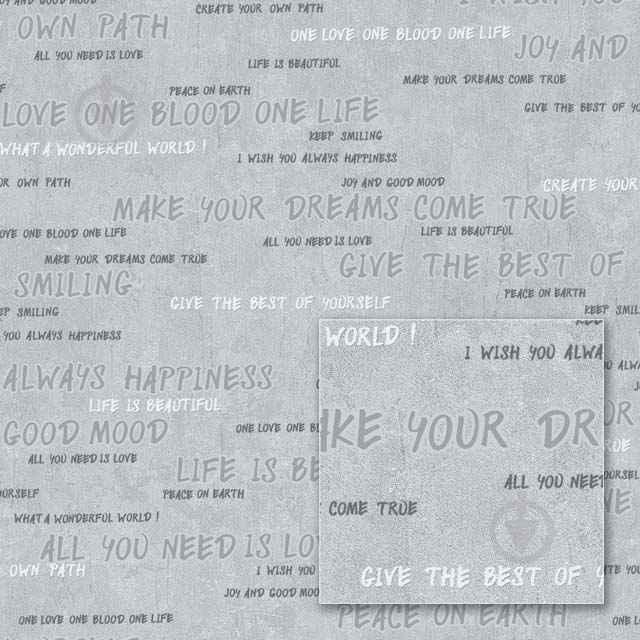 JOY AND GOOD MOOD
CREATE YOUR OWN PATH
I WISH YOU
OWN PATH
ONE LOVE ONE BLOOD ONE LIFE
JOY AND
ALL YOU NEED IS LOVE
LIFE IS BEAUTIFUL
MAKE YOUR DREAMS COME TRUE
PEACE ON EARTH
LOVE ONE BLOOD ONE LIFE
GIVE THE BEST OF YO
KEEP SMILING
WHAT A WONDERFUL WORLD !
I WISH YOU ALWAYS HAPPINESS
UR OWN PATH
JOY AND GOOD MOOD
CREATE YOUR
MAKE YOUR DREAMS COME TRUE
OVE ONE BLOOD ONE LIFE
LIFE IS BEAUTIFUL
ALL YOU NEED IS LOVE
MAKE YOUR DREAMS COME TRUE
GIVE THE BEST OF
SMILING
PEACE ON EARTH
GIVE THE BEST OF YOURSELF
EP SMILING
KEEP SMIL
YOU ALWAYS HAPPINESS
WORLD !
I WISH YOU ALWA
ALWAYS HAPPINESS
LIFE IS BEAUTIFUL
GOOD MOOD
ONE LOVE ONE BL
AKE YOUR DR
ALL YOU NEED IS LOVE
LIFE IS BE
ALL YOU NEET
OURSELF
PEACE ON EARTH
COME TRUE
WHAT A WONDERFUL WORLD !
ALL YOU NEED IS LO
OWN PATH
I WISH YOU
GIVE THE BEST OF Y
JOY AND GOOD MOO
PEACE ON EARTH
ONE LOVE ONE BLOOD ONE LIFE